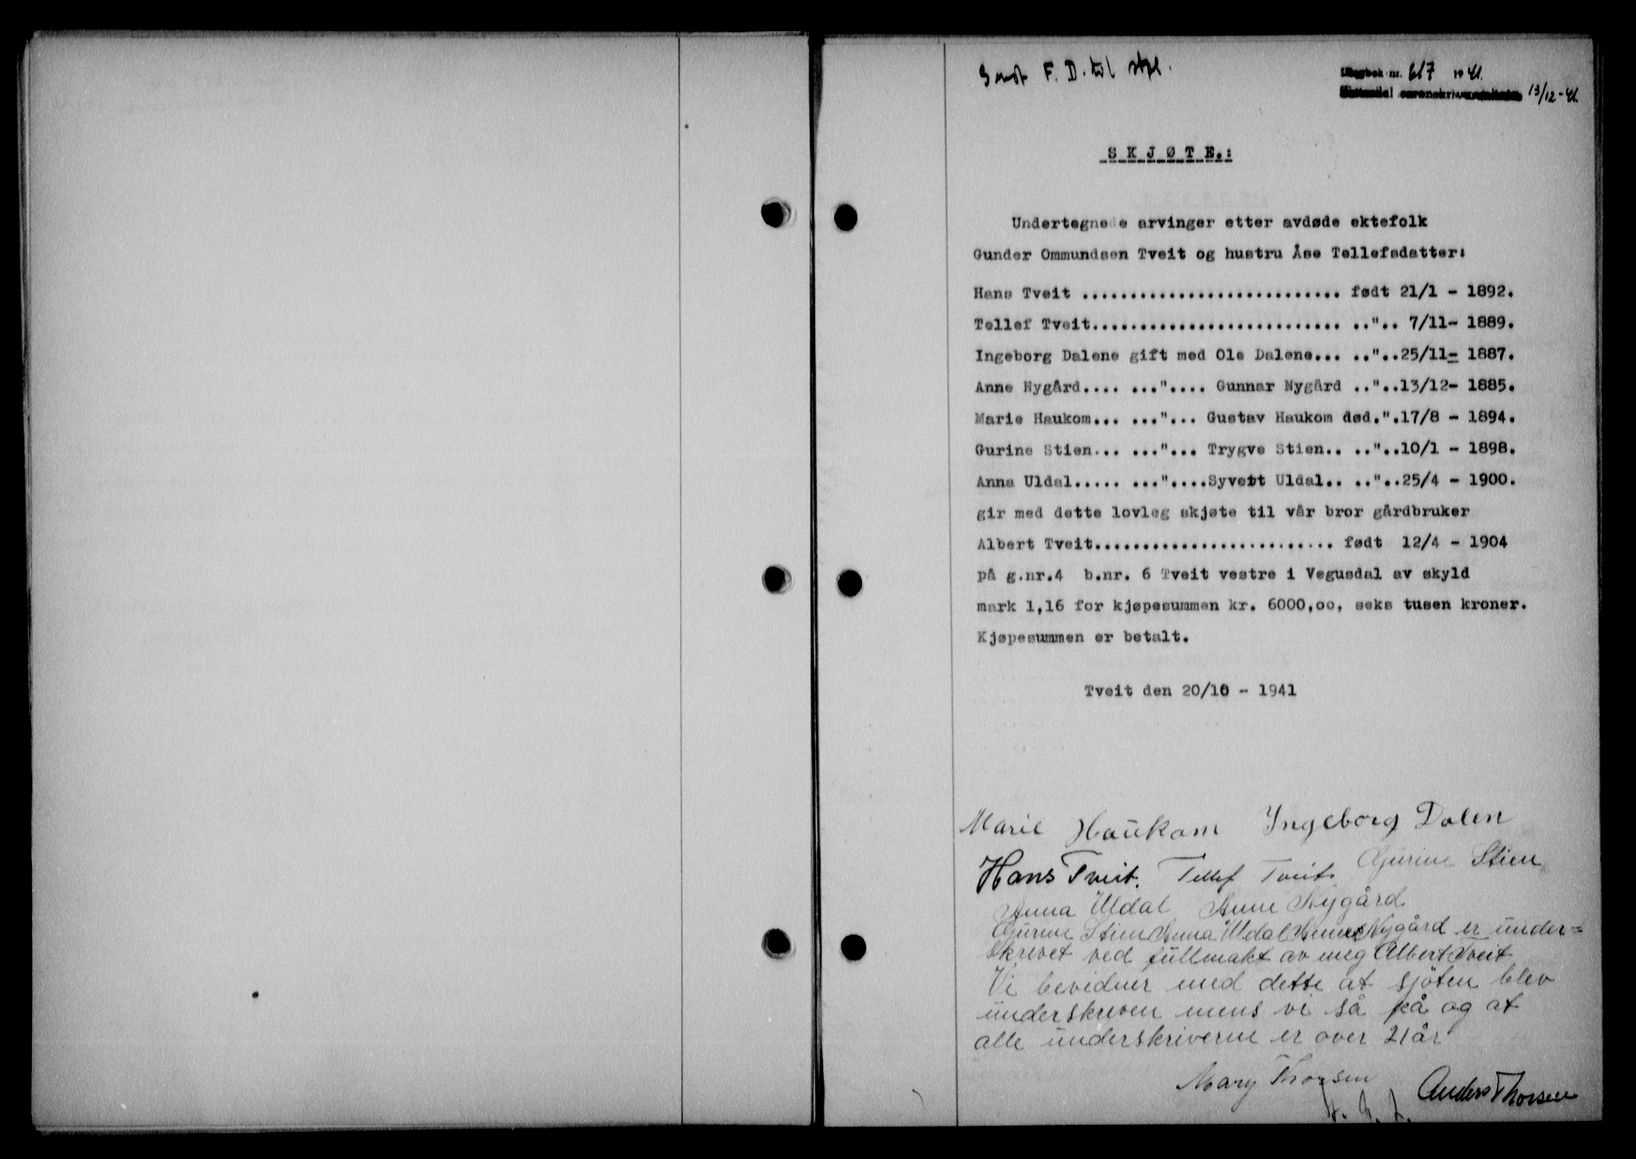 F. D. til
Dagbok nr. 617 1941.
13/12-41
SKJØTE.:
Undertegnede arvinger etter avdøde ektefolk
Gunder Ommundsen Tveit og hustru Åse Tellefsdatter:
Hans Tveit ........................... født 21/1 - 1892.
Tellef Tveit.......................... ..".. 7/11- 1889.
Ingeborg Dalene gift med Ole Dalene... .."..25/11- 1887.
Anne Nygård.... ...".... Gunnar Nygård .."..13/12- 1885.
Marie Haukom... ..."... Gustav Haukom død.".17/8 - 1894.
Gurine Stien... ..."... Trygve Stien.. .."..10/1 - 1898.
Anna Uldal..... ..."....Syvert Uldal.. .."..25/4 - 1900.
gir med dette lovleg skjøte til vår bror gårdbruker
Albert Tveit......................... født 12/4 - 1904
på g.nr.4 b.nr. 6 Tveit vestre i Vegusdal av skyld
mark 1,16 for kjøpesummen kr. 6000,oo, seks tusen kroner.
Kjøpesummen er betalt.
Tveit den 20/10 - 1941
Marie Haukom Ingeborg Dalen
Hans Tveit. Tellef Tveit Gurine Stien
Anna Uldal Anne Nygård
Gurine Stien Anna Uldal Anne Nygård er under=
skrevet ved fullmakt av meg Albert Tveit
Vi bevidner med dette at sjöten blev
underskreven mens vi så på og at
alle underskriverne er over 21 år
Mary Thorsen
Anders Thorsen